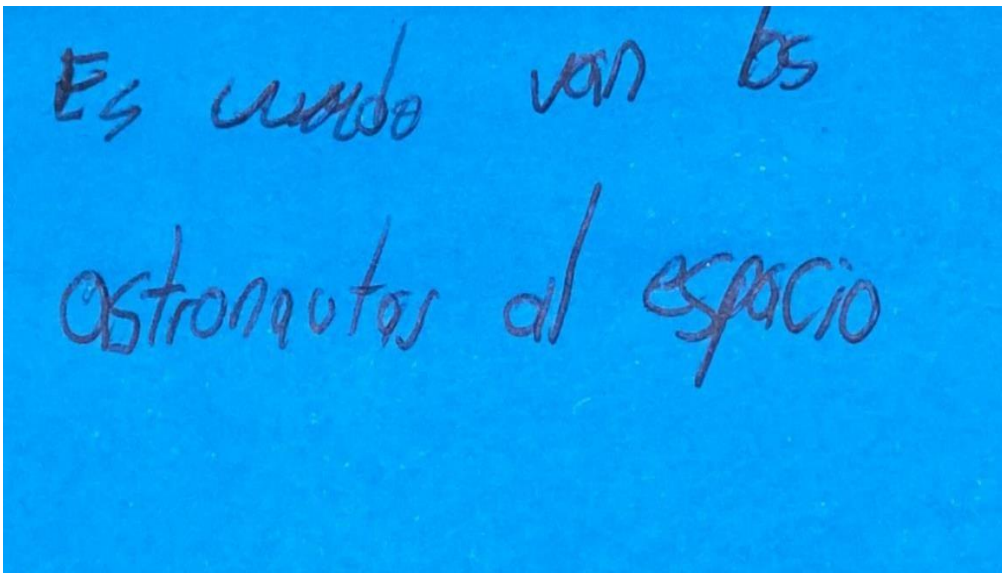 Es cuando van los
astronautas al espacio